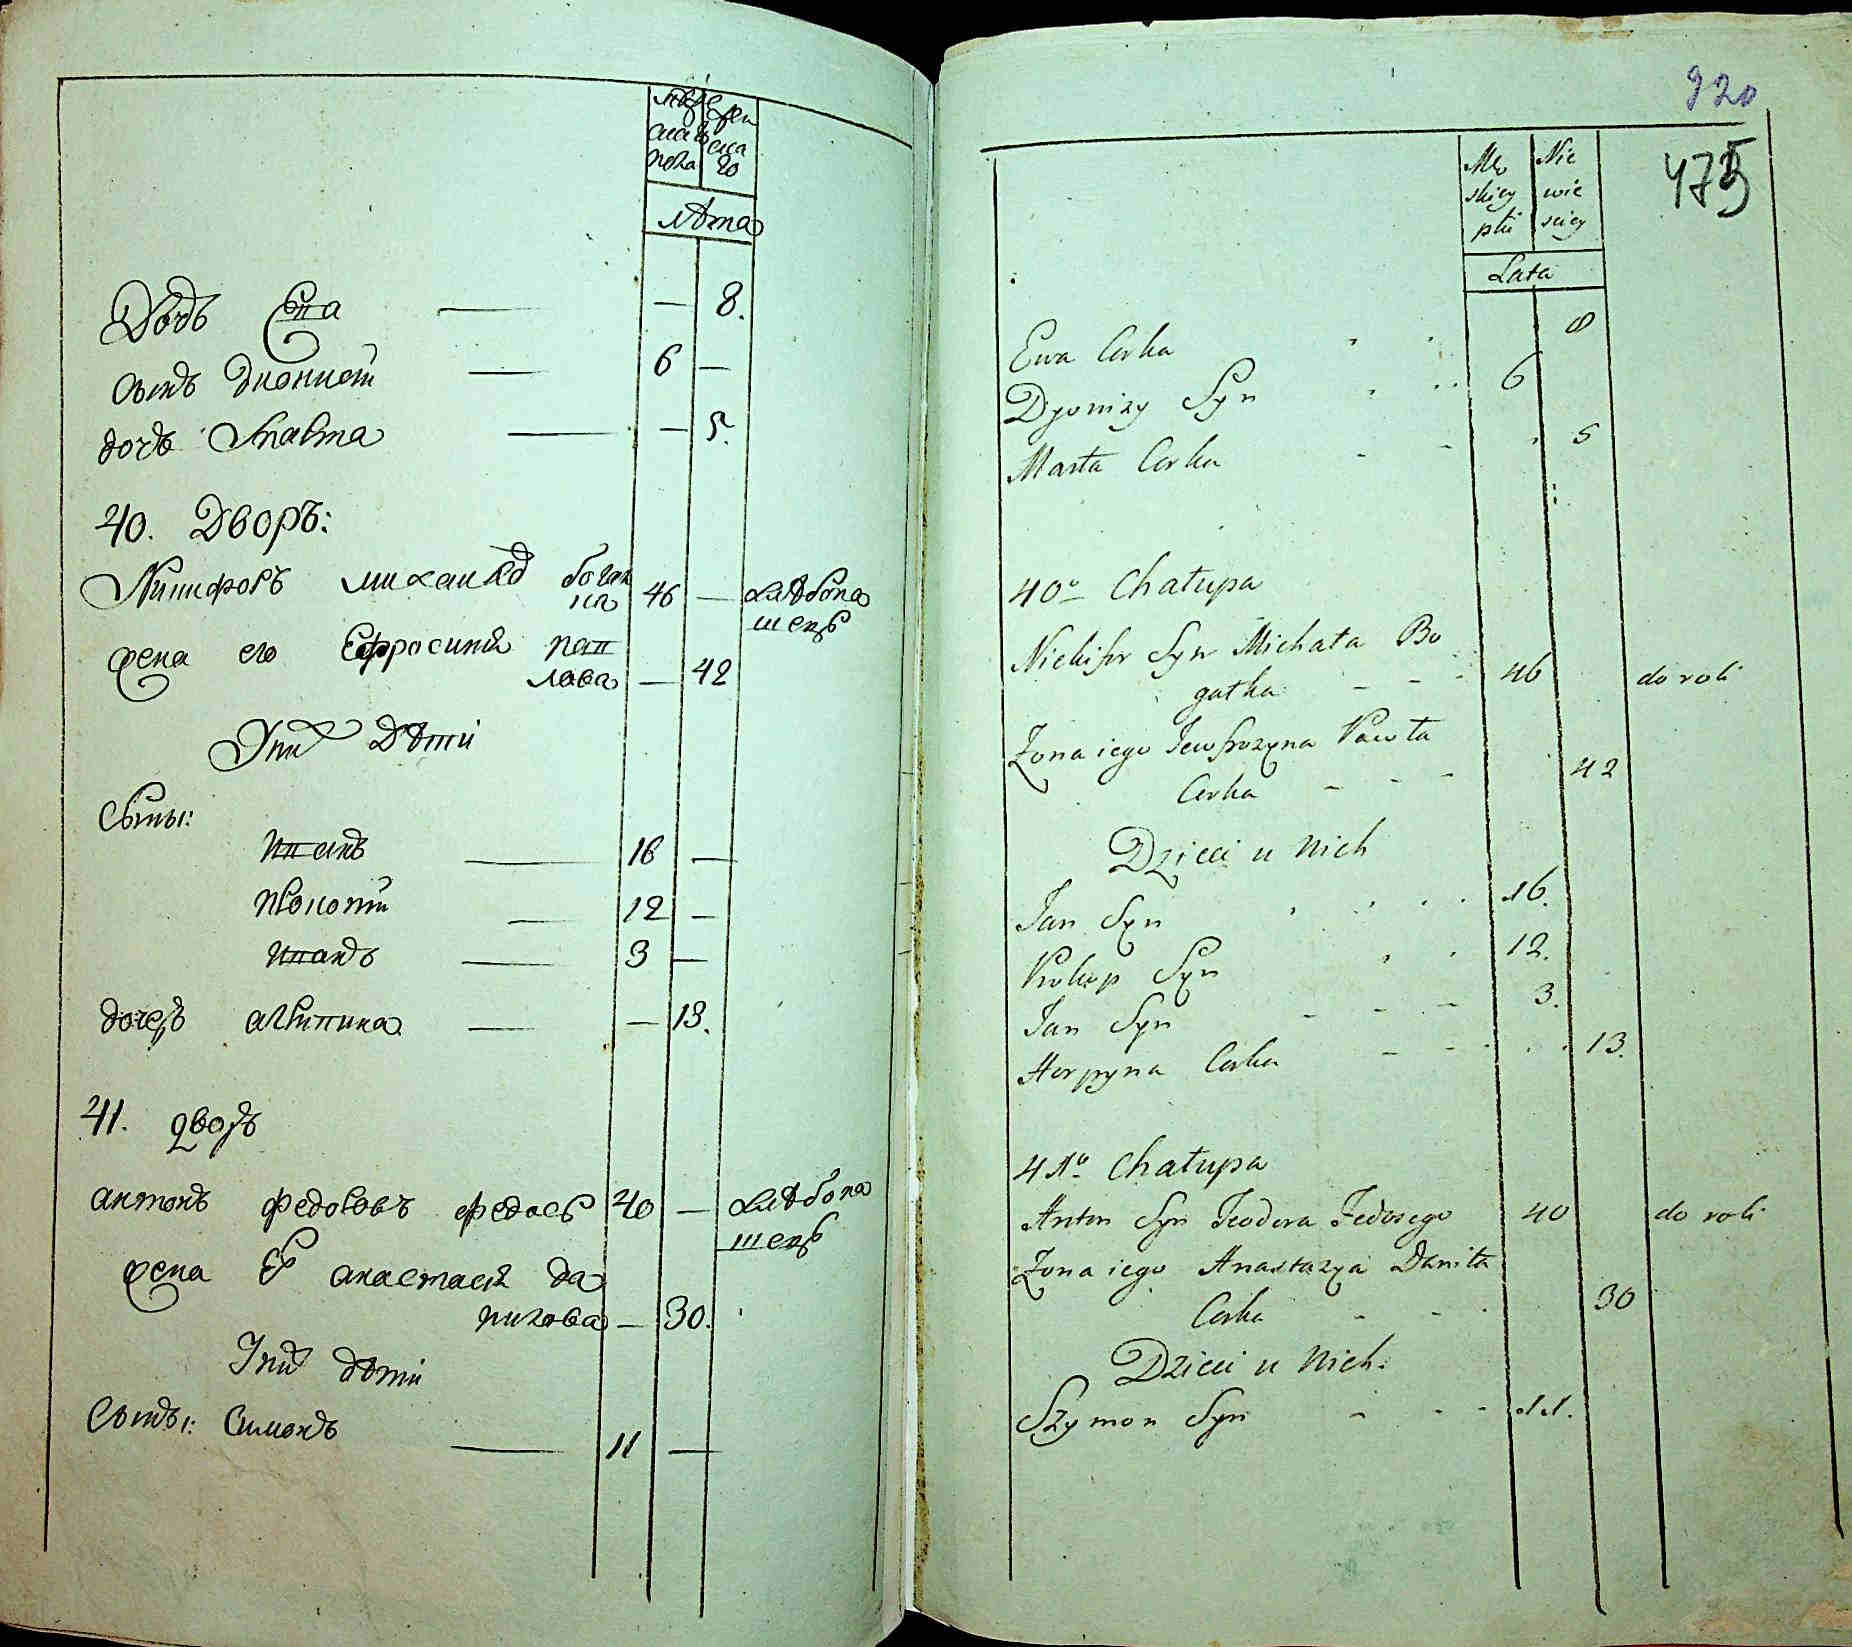 Муже
ска
пола
Жен
ска
го
лѣта
Дочь Ева — — 8.
сынъ дионисий — 6 —
дочь Марта — — 5.
40. Дворъ:
Никифоръ михайлов богат
ка 46 — хлѣбопа
шецъ
жена его Ефросиния пав
лова — 42
У них дѣти
Сыны:
иванъ — 16 —
прокопий — 12 —
иванъ — 3 —
дочерь агрипина — — 13.
41. дворъ
антонъ федоровъ федось 40 — хлѣбопа
шецъ
жена Его анастасия да
нилова — 30.
У них дѣти
Сыны: Симонъ — 11 —
920
475
Mę
skiey
płci
Nie
wie
sciey
Lata
Ewa Corka 8
Dyonizy Syn 6
Marta Corka 5
40o Chałupa
Nickifor Syn Michała Bo
gatka 46 do roli
Zona iego Jewfrozyna Pawła
Corka 42
Dzieci u Nich
Jan Syn 16.
Prokop Syn 12.
Jan Syn 3.
Horpyna Corka 13.
41o Chałupa
Anton Syn Teodora Fedosego 40 do roli
Zona iego Anastazya Daniła
Corka 30
Dzieci u Nich.
Szymon Syn 11.